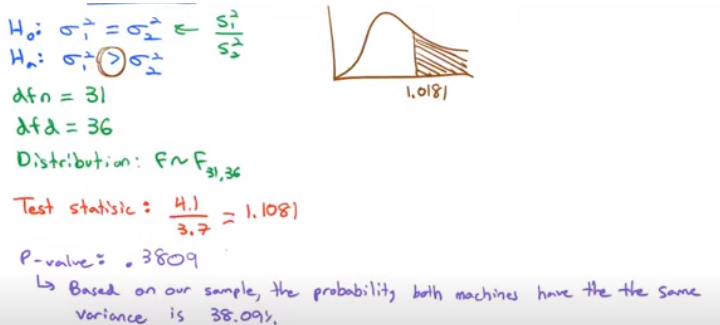 H₀: σ₁² = σ₂² ← S₁²/S₂²
Hₐ: σ₁² > σ₂²
1.0181
dfn = 31
dfd = 36
Distribution: F~F₃₁,₃₆
Test statisic: 4.1/3.7 = 1.1081
P-value: .3809
↳ Based on our sample, the probability both machines have the the same
variance is 38.09%.